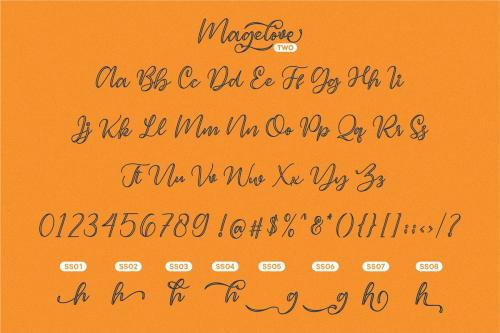 Magelove
TWO
Aa Bb Cc Dd Ee Ff Gg Hh Ii
Jj Kk Ll Mm Nn Oo Pp Qq Rr Ss
Tt Uu Vv Ww Xx Yy Zz
0123456789 !@#$%^&*(){}[]:;‹›/?
SS01 SS02 SS03 SS04 SS05 SS06 SS07 SS08
h h h h g g h h